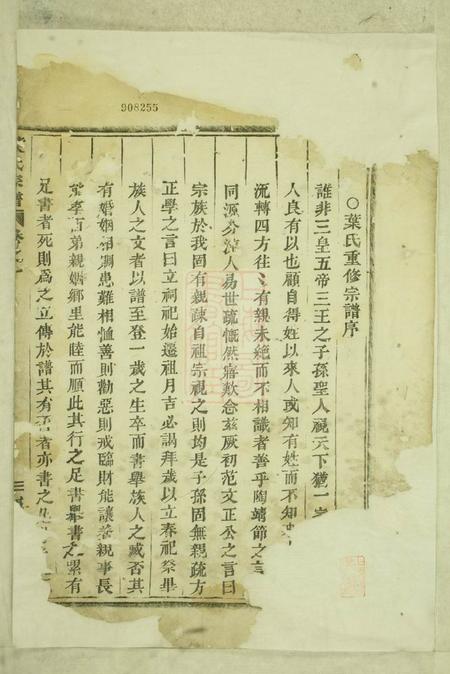 908255
○葉氏重修宗譜序
誰非三皇五帝三王之子孫聖人視天下猶一家
人良有以也顧自得姓以來人或知有姓而不知
流轉四方往〻有親未絶而不相識者善乎陶靖節之言
同源分流人易世疏慨然寤歎念茲厥初范文正公之言曰
宗族於我固有親疎自祖宗視之則均是子孫固無親疏方
正學之言曰立祠祀始遷祖月吉必謁拜歲以立春祀祭畢
族人之文者以譜至登一歲之生卒而書舉族人之臧否其
有婚姻相賙患難相恤善則勸惡則戒臨財能讓養親事長
能孝而弟親姻鄉里能睦而順此其行之足書舉書之累有
足書者死則爲之立傳於譜其有否者亦書之
氏宗譜